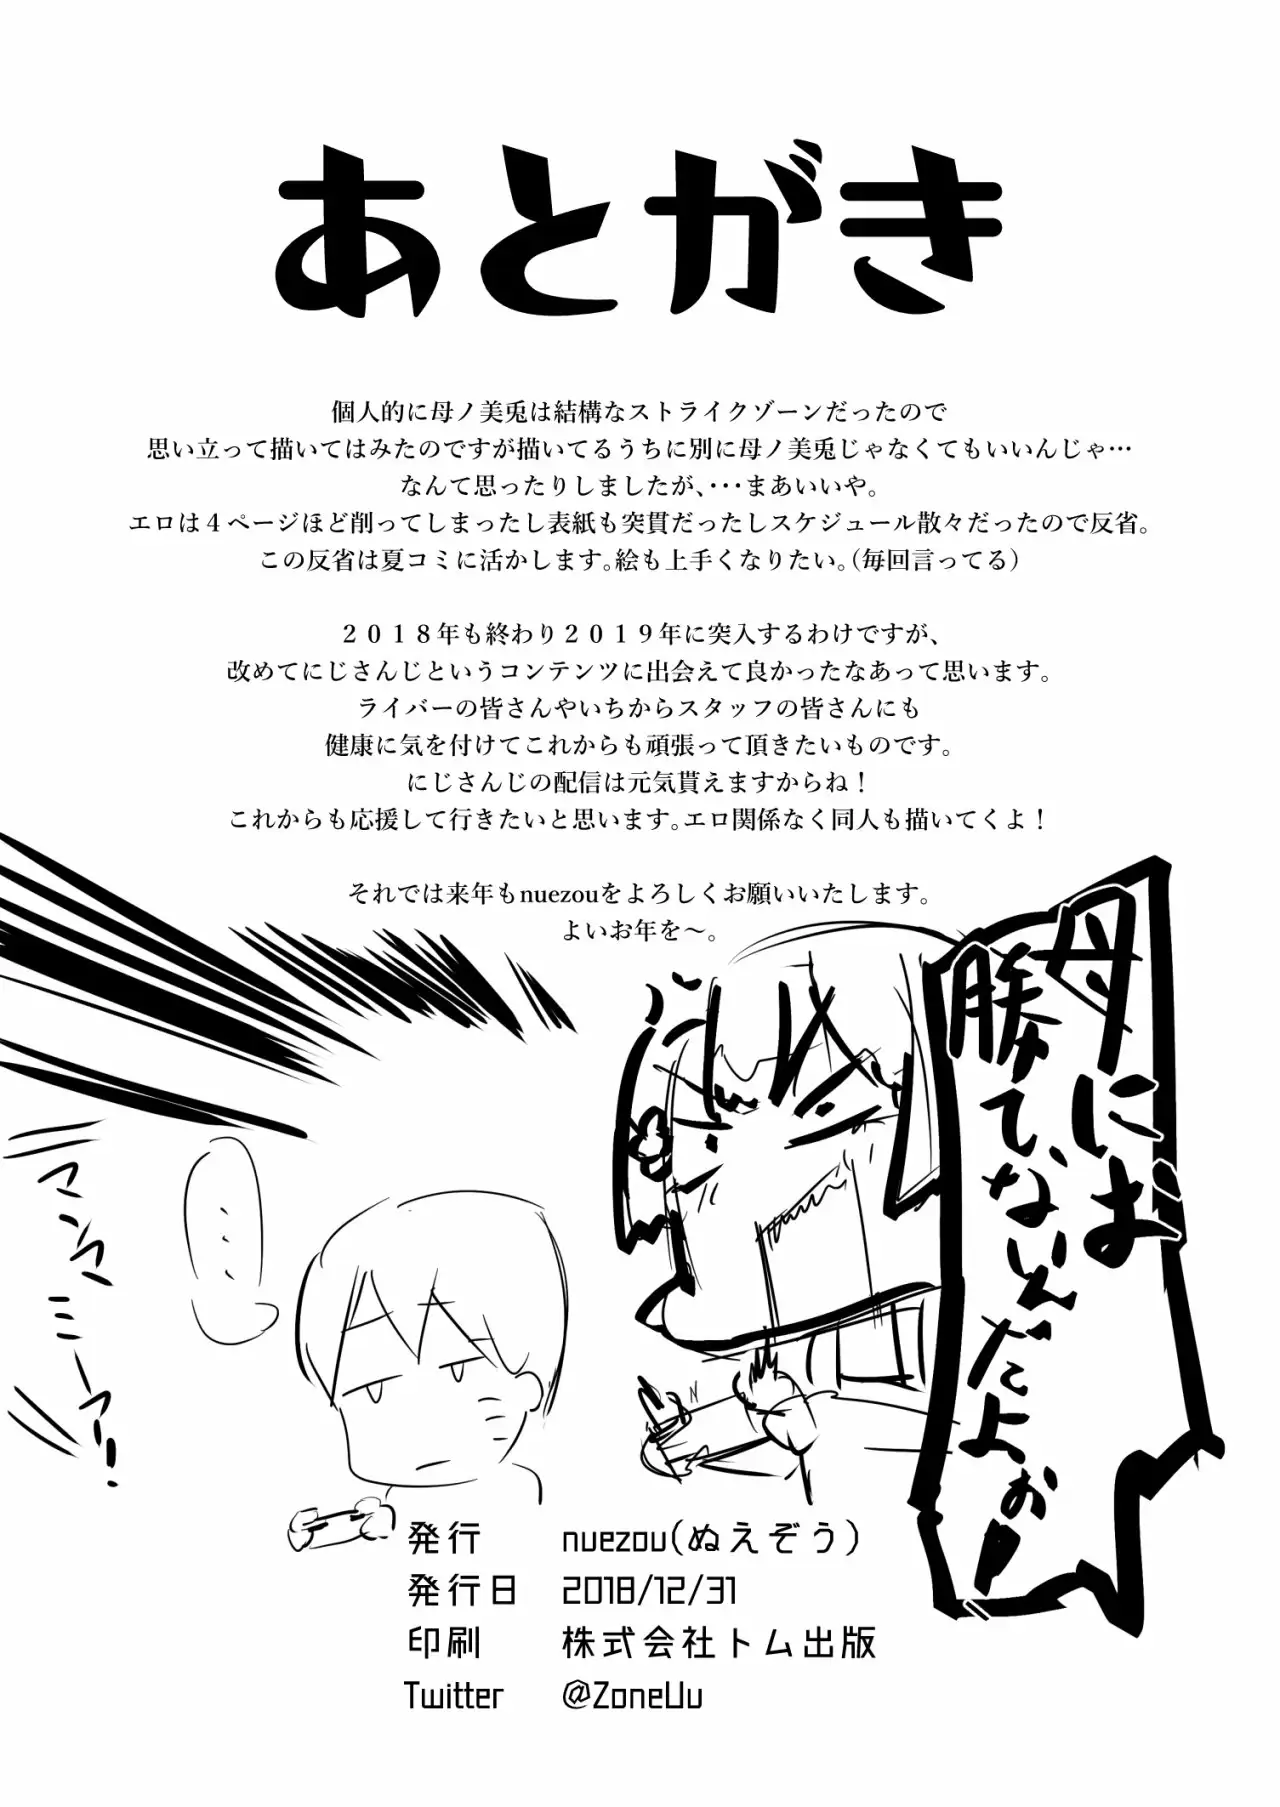 あとがき
個人的に母ノ美兎は結構なストライクゾーンだったので
思い立って描いてはみたのですが描いてるうちに別に母ノ美兎じゃなくてもいいんじゃ…
なんて思ったりしましたが、･･･まあいいや。
エロは４ページほど削ってしまったし表紙も突貫だったしスケジュール散々だったので反省。
この反省は夏コミに活かします。絵も上手くなりたい。（毎回言ってる）
２０１８年も終わり２０１９年に突入するわけですが、
改めてにじさんじというコンテンツに出会えて良かったなあって思います。
ライバーの皆さんやいちからスタッフの皆さんにも
健康に気を付けてこれからも頑張って頂きたいものです。
にじさんじの配信は元気貰えますからね！
これからも応援して行きたいと思います。エロ関係なく同人も描いてくよ！
それでは来年もnuezouをよろしくお願いいたします。
よいお年を～。
母には
勝てないんだよぉ！
･･･
マンマ
ミーアー！
発行 nuezou(ぬえぞう)
発行日 2018/12/31
印刷 株式会社トム出版
Twitter @ZoneUu